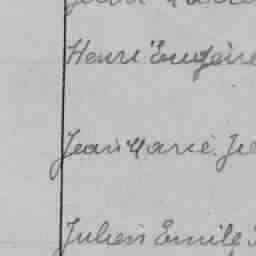 Henri Eugène
Jean Marie Ju
Julien Emile